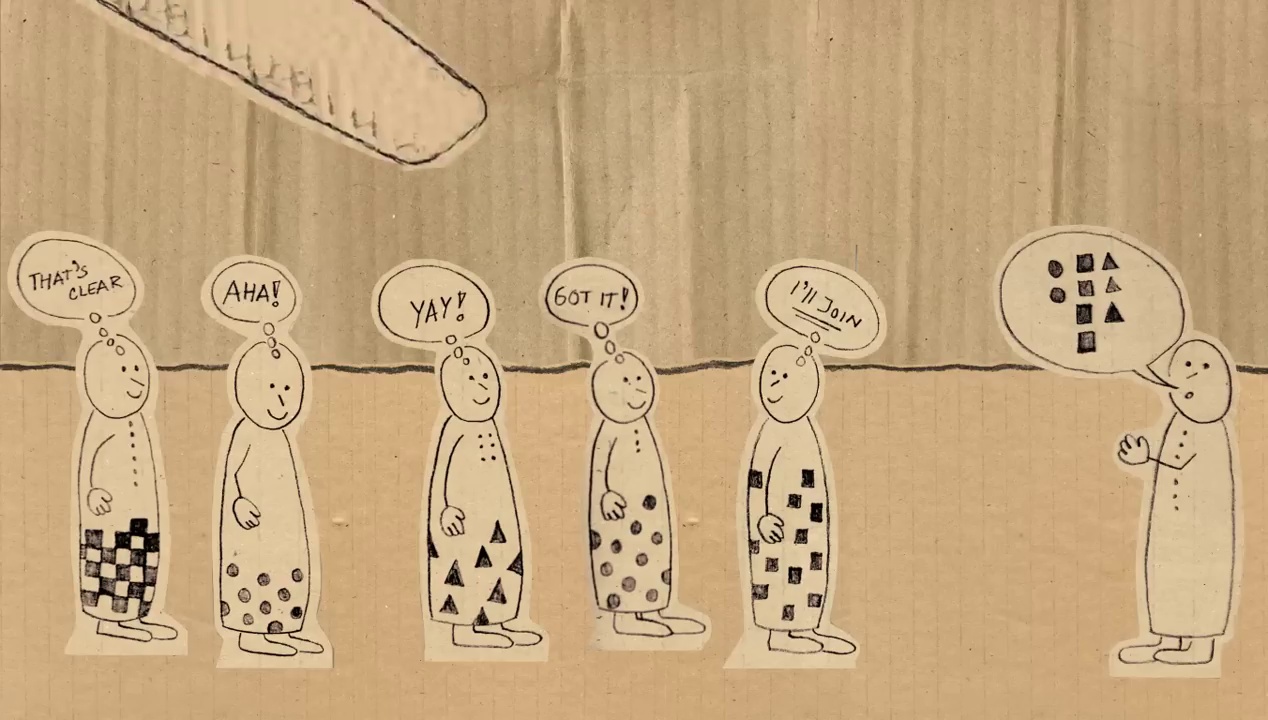 THAT'S
CLEAR
AHA!
YAY!
GOT IT!
I'll JOIN